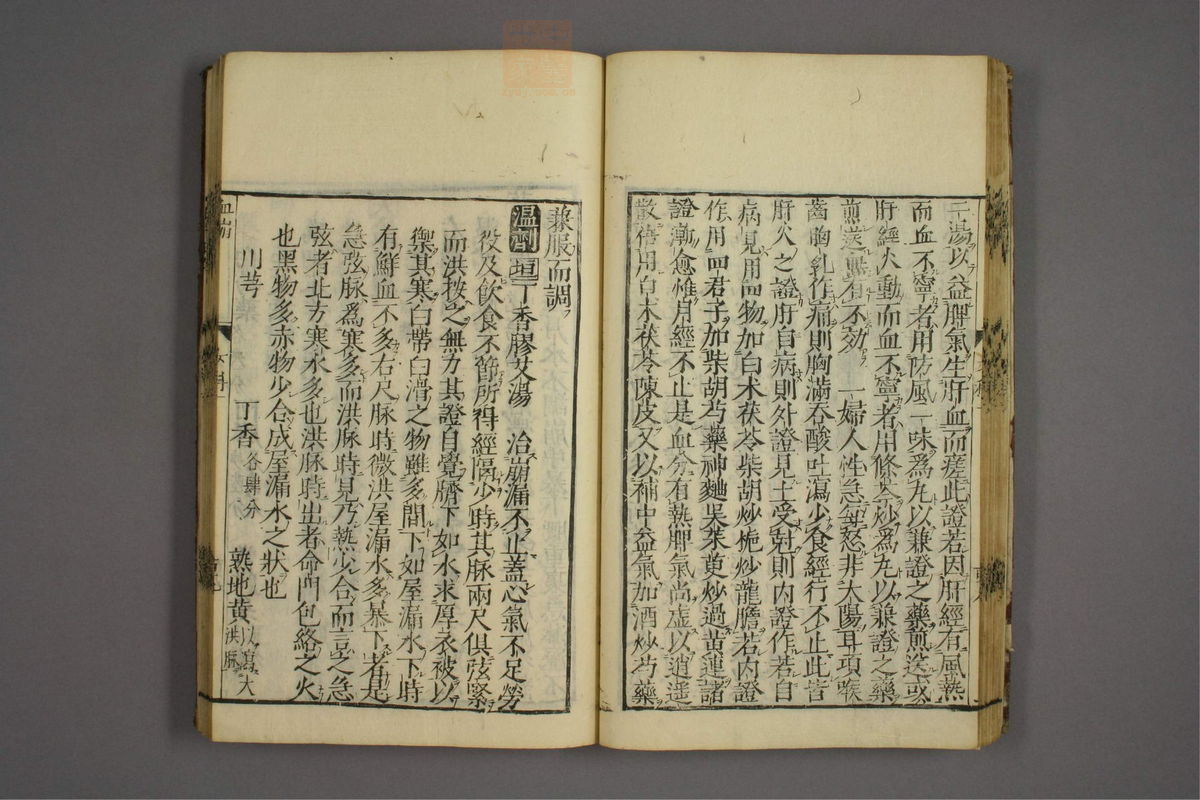 二湯以益脾氣生肝血而瘥此證若因肝經有風熱
而血不寧者用防風一味爲丸以兼證之藥煎送或
肝經火動而血不寧者用條芩炒爲丸以兼證之藥
煎送無有不效 一婦人性急每怒非太陽耳項喉
齒胸乳作痛則胸滿吞酸吐瀉少食經行不止此皆
肝火之證肝自病則外證見土受尅則内證作若自
病見用四物加白朮茯苓柴胡炒梔炒龍膽若内證
作用四君子加柴胡芍藥神麯吳茱萸炒過黄連諸
證漸愈惟月經不止是血分有熱脾氣尚虛以逍遥
散倍用白朮茯苓陳皮又以補中益氣加酒炒芍藥
兼服而調
温劑 垣 丁香膠艾湯 治崩漏不止蓋心氣不足勞
役及飲食不節所得經隔少時其脉兩尺俱弦緊
而洪按之無力其證自覺臍下如水求厚衣被以
禦其寒白帶白滑之物雖多間下如屋漏水下時
有鮮血不多右尺脉時微洪屋漏水多暴下者是
急弦脉爲寒多而洪脉時見乃熱少合而言之急
弦者北方寒水多也洪脉時出者命門包絡之火
也黑物多赤物少合成屋漏水之狀也
川芎 丁香各肆分 熟地黄以寫大洪脉
血崩
女科